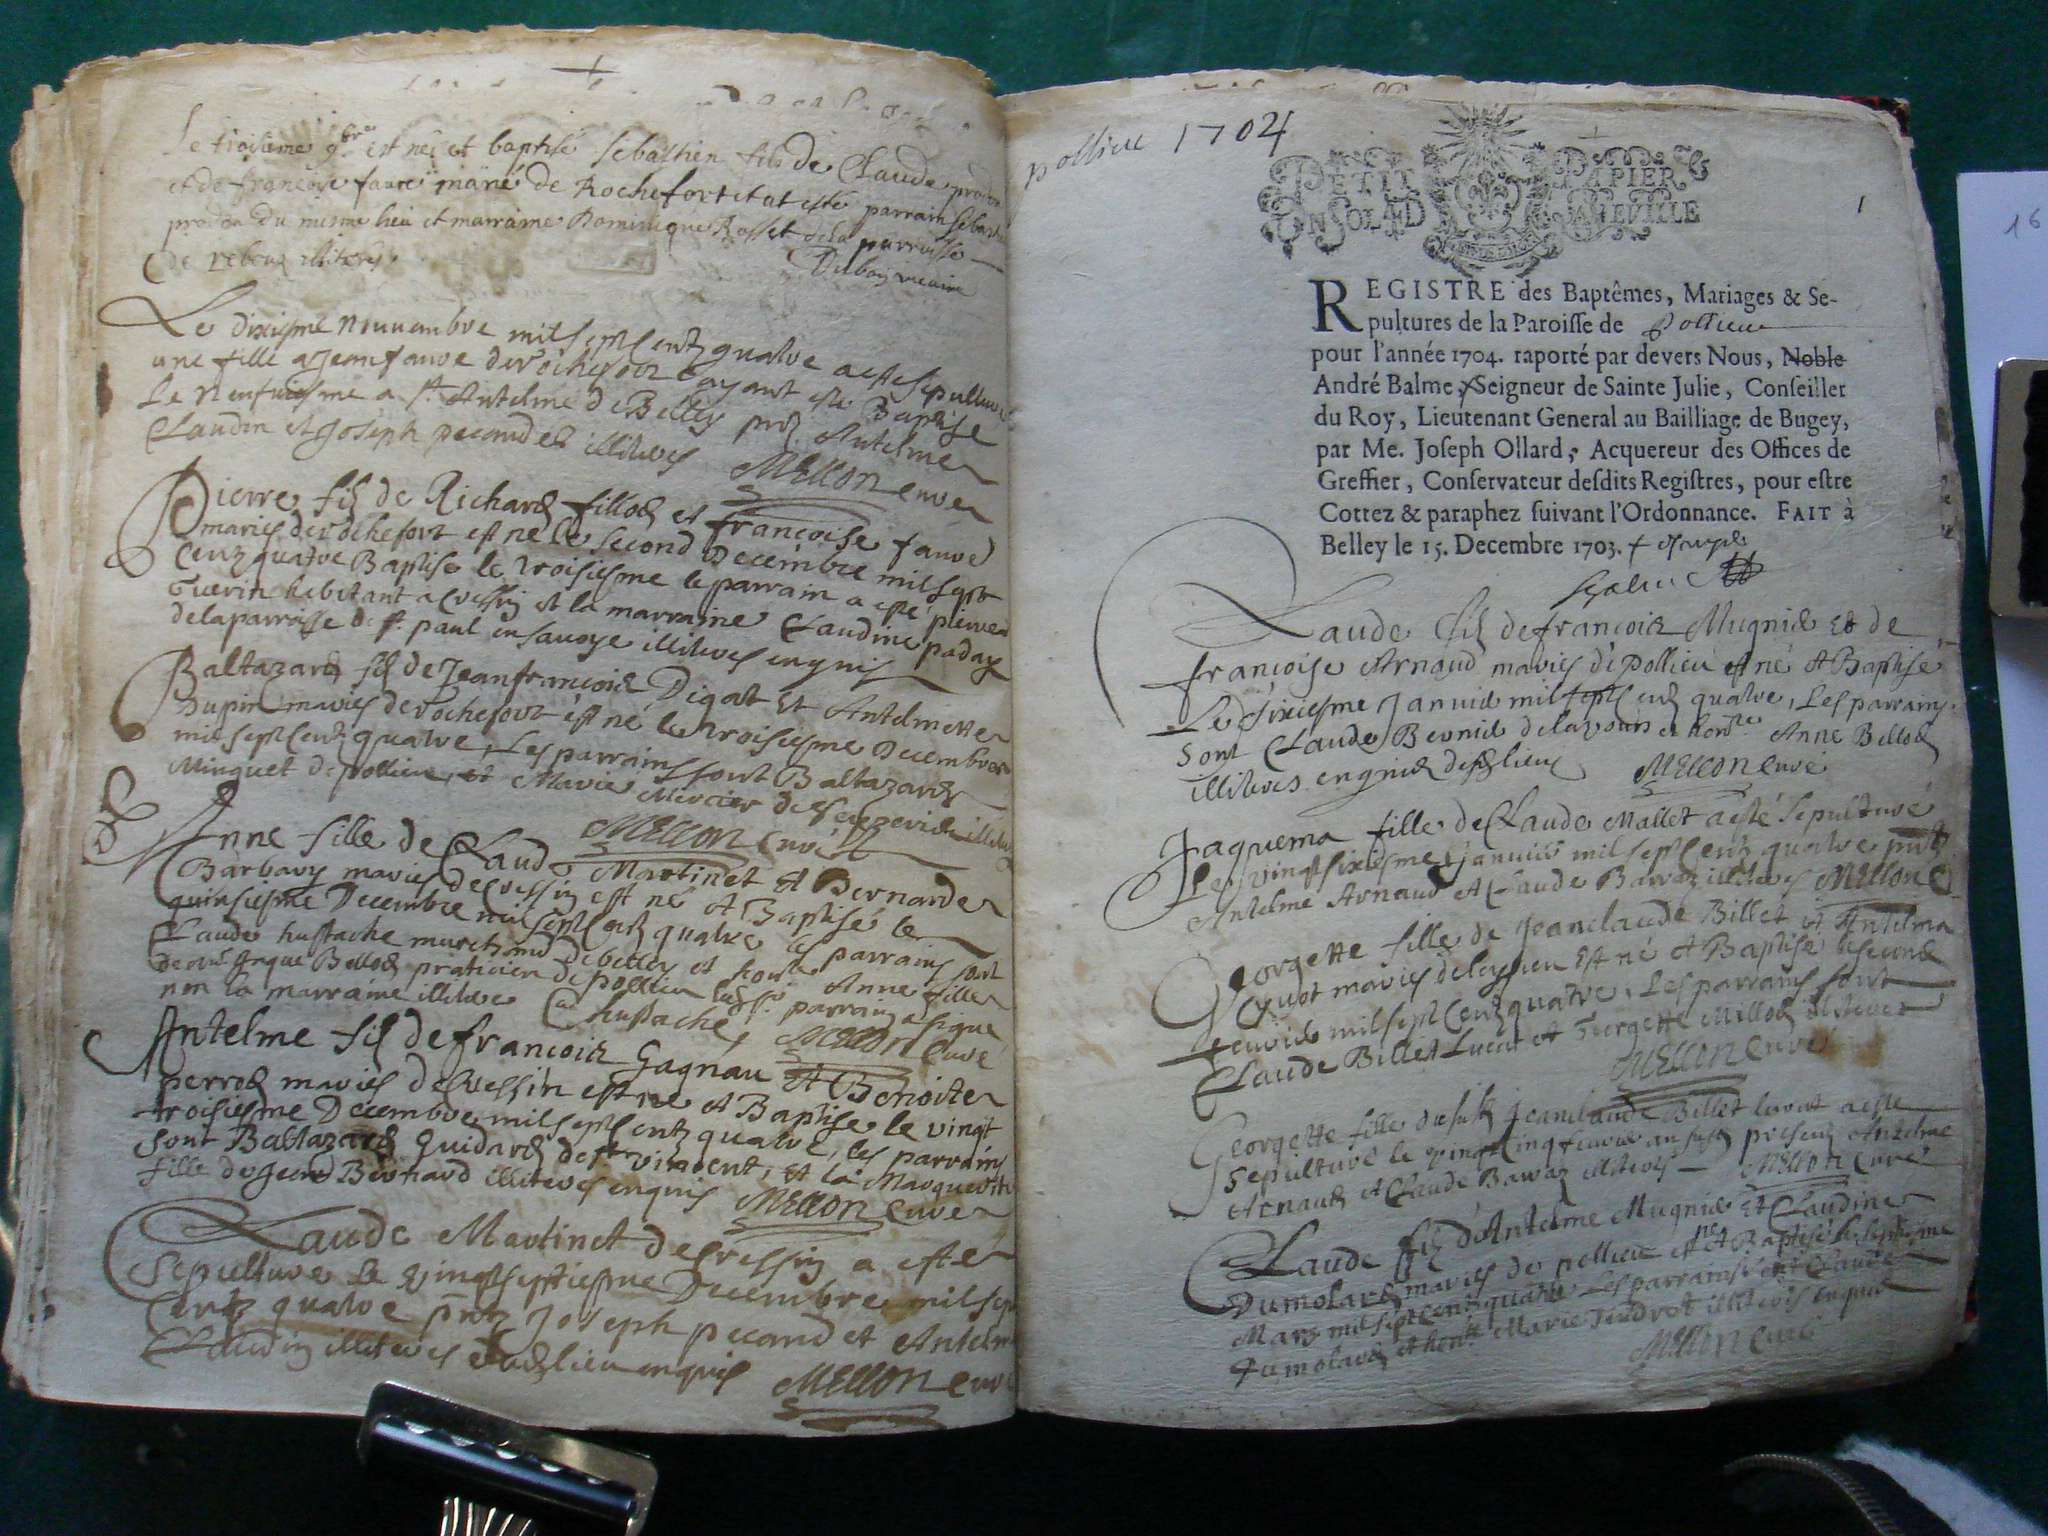 Le troisième 9bre est né et baptisé Sebastien fils de Claude prodon
et de françoise faure marié de Rochefort et at esté parrain Sebastien
prodon du misme lieu et marraime Dominique Rosset de la parroisse
de illiterés
Dubois vicaire
Le dixiesme nouuambre mil sept centz quatre a esté sepulturé
une fille a Jean fauve de rochefort ayant esté Baptisé
Le neufuiesme a st Antelme de Belley Antelme
Claudin et Joseph pecaud illiterés
MELLON curé
Pierre fils de Richard fillod et françoise fauve
mariés de rochefort est né le second Decembre mil sept
centz quatre Baptisé le troisiesme le parrain a esté pierre
Guerin habitant a Cressin et la marraine Claudine paday
de la parroisse de st paul en sauoye illiterés enquis
Baltazard fils de Jean françois Digat Et Antelmette
Dupin mariés de rochefort est né le troisiesme Decembre
mil sept centz quatre, Les parrains sont Baltazard
Minguet de pollieu, et Marie Mercier de illiterés
MELLON curé
Anne fille de Claude Martinet et Bernarde
Barbary mariés de Cressin est né et Baptisé le
quinsiesme Decembre mil sept centz quatre les parrains sont
Claude hustache marchand de belley et honte Anne fille
de Bellod praticien de pollieu parrain a signé
non la marraine illiterée
C hustache MELLON curé
Antelme fils de françois Gagnau et Benoite
perrod mariés de Cressin est né et Baptisé le vingt
troisiesme Decembre mil sept centz quatre, les parrains
sont Baltazard Guidard de st vincent, et la Marguerite
fille de Jean Bernard illiterés enquis MELLON curé
Claude Martinet de Cressin a esté
Sepulturé Le vingtseptiesme Decembre mil sept
Centz quatre Joseph pecaud et Antelme
Claudin illiterés dudlieu enquis
MELLON curé
pollieu 1704
PETIT PAPIER
UN SOL 4D LA FEVILLE
1
REGISTRE des Baptêmes, Mariages & Se-
pultures de la Paroisse de Pollieu
pour l'année 1704. raporté par devers Nous, Noble
André Balme, Seigneur de Sainte Julie, Conseiller
du Roy, Lieutenant General au Bailliage de Bugey,
par Me. Joseph Ollard, Acquereur des Offices de
Greffier, Conservateur desdits Registres, pour estre
Cottez & paraphez suivant l'Ordonnance. FAIT à
Belley le 15. Decembre 1703.
Claude fils de françois Mugnié Et de
françoise Arnaud mariés de pollieu est né et Baptisé
Le sixiesme Januié mil sept centz quatre, Les parrains
sont Claude Bernié de lavours et honte Anne Bellod
illiterés enquis desdlieux MELLON curé
Jaquema fille de Claude Mallet a esté sepulturé
Le vingtsixiesme Januié mil sept centz quatre
Antelme Arnaud et Claude Barraz illiterés MELLON C
Georgette fille de Jeanclaude Billet et Antelma
mariés de leyssieu est né et Baptisé le second
feurié mil sept centz quatre, Les parrains sont
Claude Billet Lucat et Georgette Millod illiterés
MELLON curé
Georgette fille dudit Jeanclaude Billet lucat a esté
sepulturé le vingtcinq feurié an susd presentz Antelme
Arnaud et Claude Barraz illiterés MELLON curé
Claude fils d'Antelme Mugnié Et Claudine
Dumolard mariés de pollieu est né et Baptisé le septiesme
Mars mil sept centz quatre Les parrains sont Claude
Dumolard et honte Marie illiterés enquis
MELLON curé
16